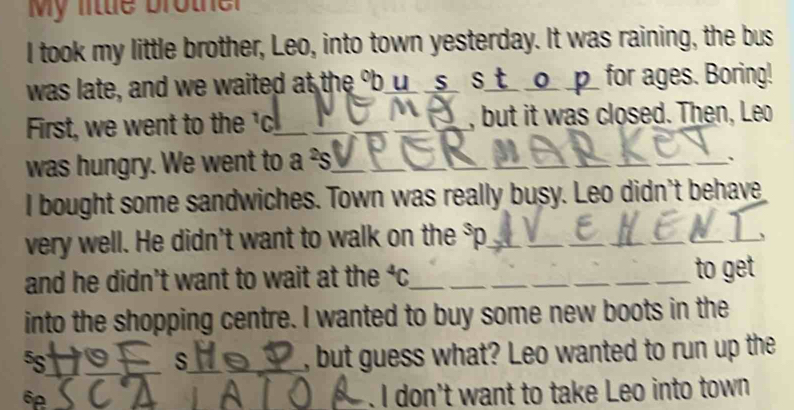 My little brother
I took my little brother, Leo, into town yesterday. It was raining, the bus
was late, and we waited at the ⁰b u s s t o p for ages. Boring!
First, we went to the ¹c I N E M A, but it was closed. Then, Leo
was hungry. We went to a ²s U P E R M A R K E T.
I bought some sandwiches. Town was really busy. Leo didn't behave
very well. He didn't want to walk on the ³p A V E M E N T,
and he didn't want to wait at the ⁴c__ __ __ __ __ __ __ to get
into the shopping centre. I wanted to buy some new boots in the
⁵s H O E s H O P, but guess what? Leo wanted to run up the
⁶e S C A L A T O R. I don't want to take Leo into town